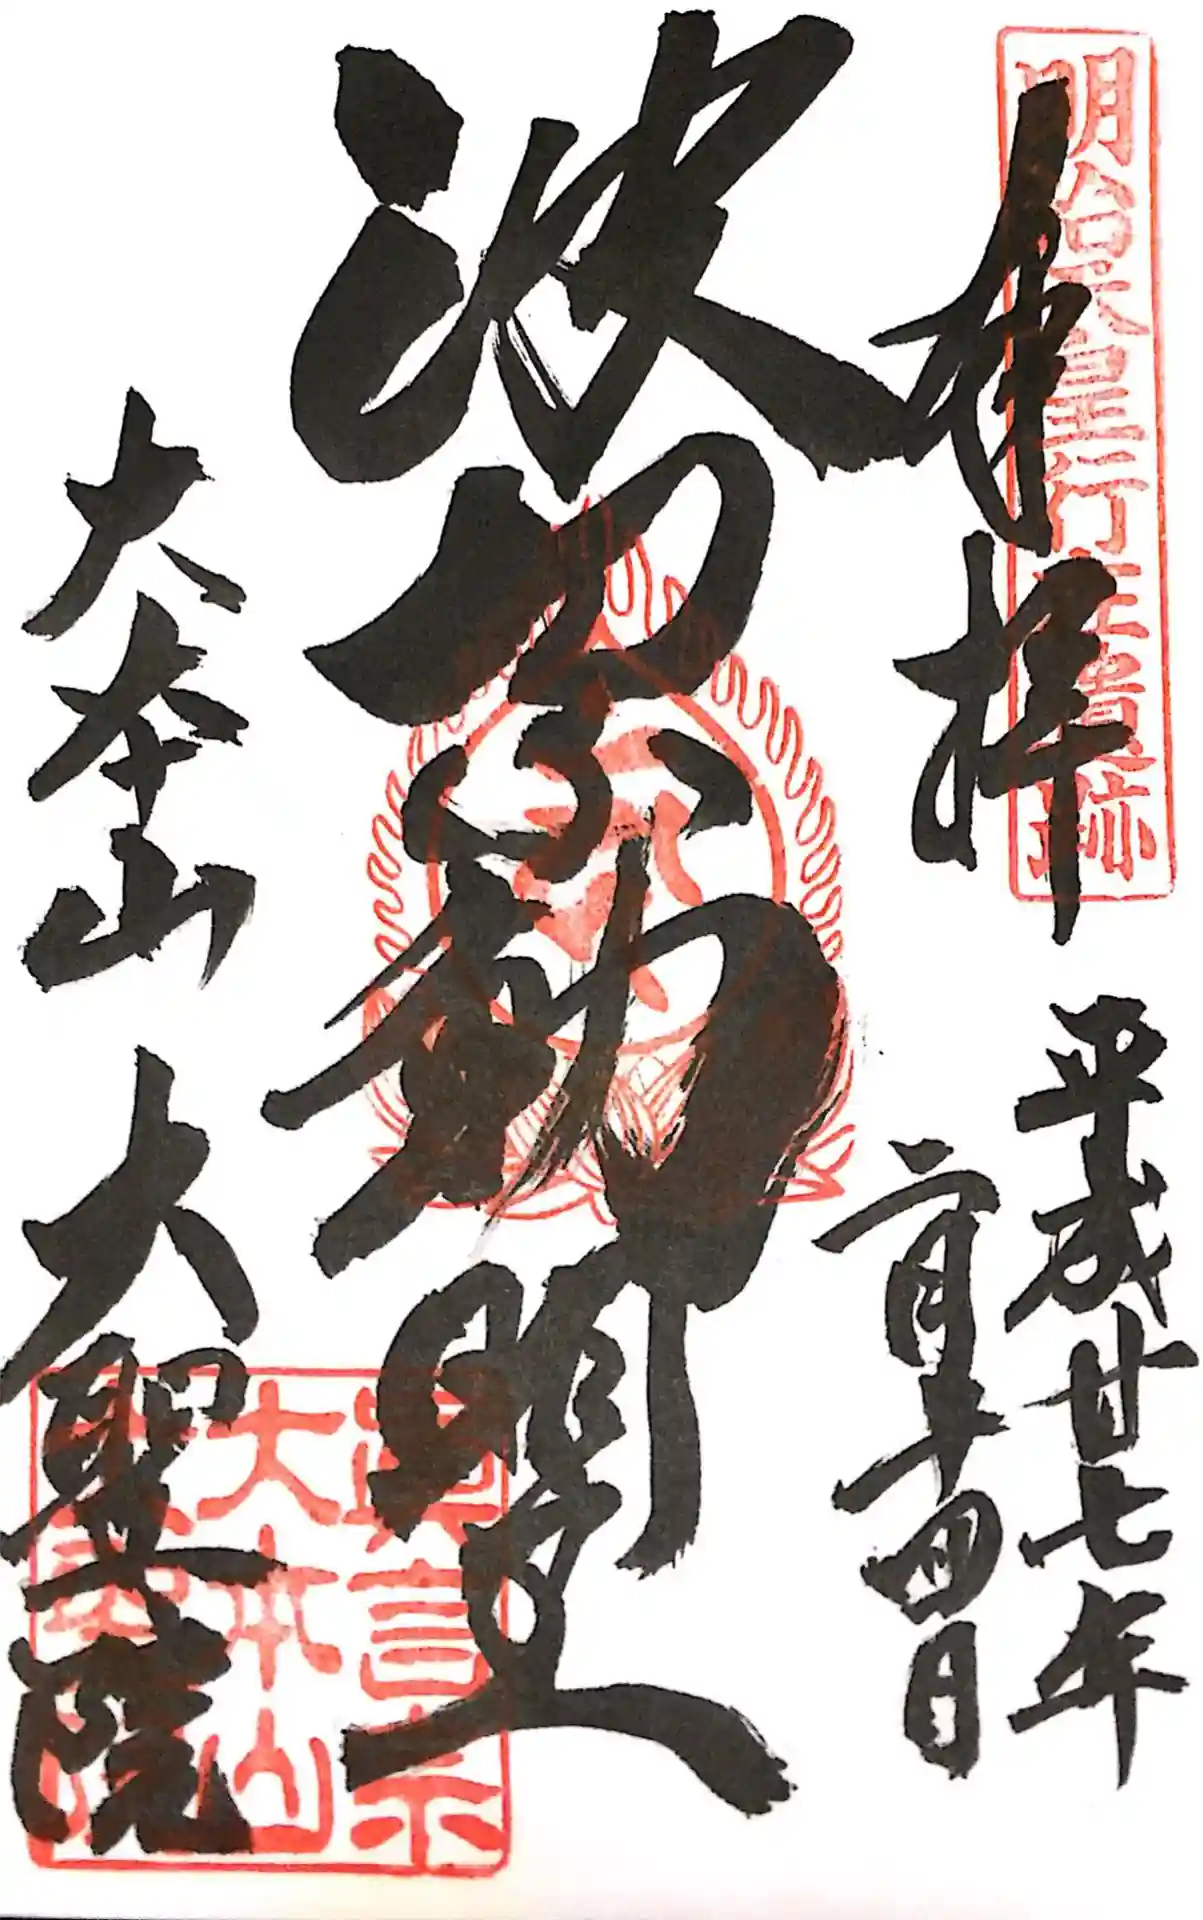 明治天皇行在
奉拝
平成廿七年
二月十四日
波切不動明王
大本山 大聖院
真言宗
大本山